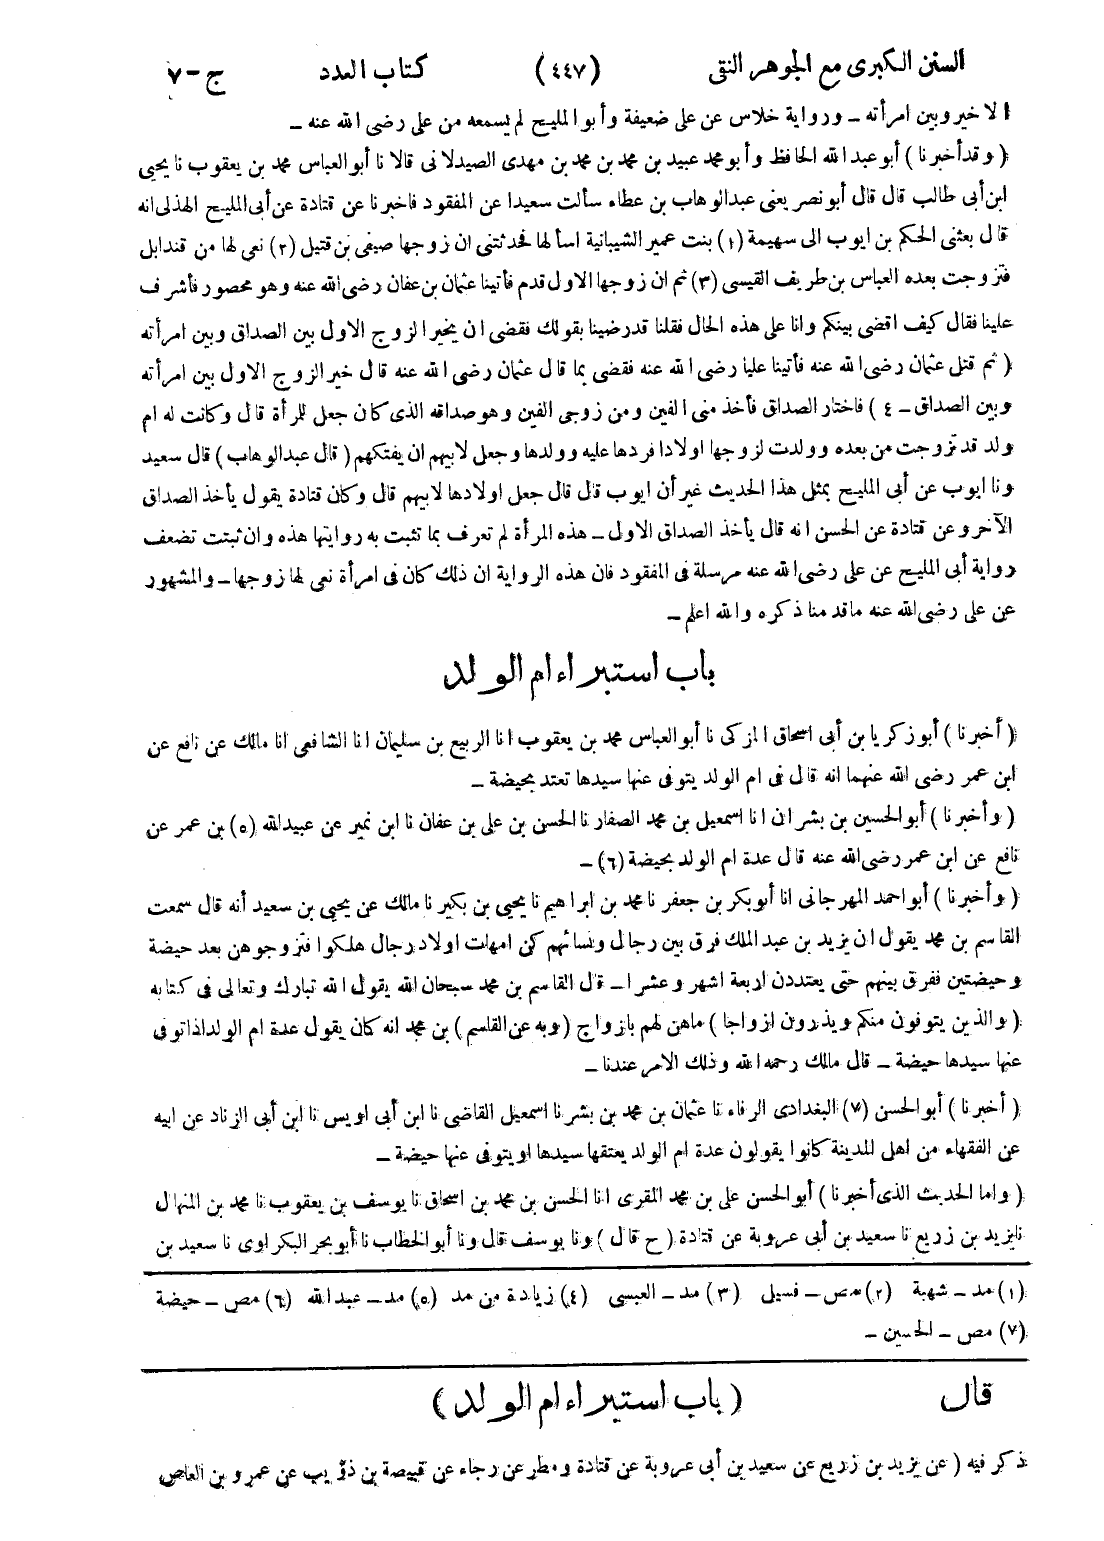 السنن الكبرى مع الجوهر النقى (٤٤٧) كتاب العدد ج-٧
الاخير وبين امرأته - ورواية خلاس عن على ضعيفة وأبو المليح لم يسمعه من على رضى الله عنه -
( وقد أخبرنا ) أبو عبد الله الحافظ وأبو محمد عبيد بن محمد بن محمد بن مهدى الصيدلانى قالا نا أبو العباس محمد بن يعقوب نا يحيى
ابن أبى طالب قال قال أبو نصر يعنى عبد الوهاب بن عطاء سألت سعيدا عن المفقود فاخبرنا عن قتادة عن أبى المليح الهذلى انه
قال بعثنى الحكم بن ايوب الى سهيمة (١) بنت عمير الشيبانية اسألها فحدثتنى ان زوجها صيفى بن قتيل (٢) نعى لها من قندابل
فتزوجت بعده العباس بن طريف القيسى (٣) ثم ان زوجها الاول قدم فأتينا عثمان بن عفان رضى الله عنه وهو محصور فأشرف
علينا فقال كيف اقضى بينكم وانا على هذه الحال فقلنا قد رضينا بقولك فقضى ان يخير الزوج الاول بين الصداق وبين امرأته
( ثم قتل عثمان رضى الله عنه فأتينا عليا رضى الله عنه فقضى بما قال عثمان رضى الله عنه قال خير الزوج الاول بين امرأته
وبين الصداق - ٤ ) فاختار الصداق فأخذ منى الفين ومن زوجى الفين وهو صداقه الذى كان جعل للمرأة قال وكانت له ام
ولد قد تزوجت من بعده وولدت لزوجها اولادا فردها عليه وولدها وجعل لابيهم ان يفتكهم ( قال عبد الوهاب ) قال سعيد
ونا ايوب عن أبى المليح بمثل هذا الحديث غير أن ايوب قال قال جعل اولادها لابيهم قال وكان قتادة يقول يأخذ الصداق
الآخر وعن قتادة عن الحسن انه قال يأخذ الصداق الاول - هذه المرأة لم تعرف بما تثبت به روايتها هذه وان ثبتت تضعف
رواية أبى المليح عن على رضى الله عنه مرسلة فى المفقود فان هذه الرواية ان ذلك كان فى امرأة نعى لها زوجها - والمشهور
عن على رضى الله عنه ما قدمنا ذكره والله اعلم -
باب استبراء ام الولد
( أخبرنا ) أبو زكريا بن أبى اسحاق المزكى نا أبو العباس محمد بن يعقوب انا الربيع بن سليمان انا الشافعى انا مالك عن نافع عن
ابن عمر رضى الله عنهما انه قال فى ام الولد يتوفى عنها سيدها تعتد بحيضة -
( وأخبرنا ) أبو الحسين بن بشران انا اسمعيل بن محمد الصفار نا الحسن بن على بن عفان نا ابن نمير عن عبيد الله (٥) بن عمر عن
نافع عن ابن عمر رضى الله عنه قال عدة ام الولد بحيضة (٦) -
( وأخبرنا ) أبو احمد المهرجانى انا أبو بكر بن جعفر نا محمد بن ابراهيم نا يحيى بن بكير نا مالك عن يحيى بن سعيد أنه قال سمعت
القاسم بن محمد يقول ان يزيد بن عبد الملك فرق بين رجال ونسائهم كن امهات اولاد رجال هلكوا فتزوجوهن بعد حيضة
وحيضتين ففرق بينهم حتى يعتددن اربعة اشهر وعشرا - قال القاسم بن محمد سبحان الله يقول الله تبارك وتعالى فى كتابه
( والذين يتوفون منكم ويذرون ازواجا ) ماهن لهم بازواج ( وبه عن القاسم ) بن محمد انه كان يقول عدة ام الولد اذا توفى
عنها سيدها حيضة - قال مالك رحمه الله وذلك الامر عندنا -
( أخبرنا ) أبو الحسن (٧) البغدادى الرفاء نا عثمان بن محمد بن بشر نا اسمعيل القاضى نا ابن أبى اويس نا ابن أبى الزناد عن ابيه
عن الفقهاء من اهل المدينة كانوا يقولون عدة ام الولد يعتقها سيدها او يتوفى عنها حيضة -
( واما الحديث الذى أخبرنا ) أبو الحسن على بن محمد المقرى انا الحسن بن محمد بن اسحاق نا يوسف بن يعقوب نا محمد بن المنهال
نا يزيد بن زريع نا سعيد بن أبى عروبة عن قتادة ( ح قال ) ونا يوسف قال ونا أبو الخطاب نا أبو بحر البكراوى نا سعيد بن
(١) مد - شهبة (٢) مص - فسيل (٣) مد - العبسى (٤) زيادة من مد (٥) مد - عبد الله (٦) مص - حيضة
(٧) مص - الحسين -
قال ( باب استبراء ام الولد )
ذكر فيه ( عن يزيد بن زريع عن سعيد بن أبى عروبة عن قتادة ومطر عن رجاء عن قبيصة بن ذؤيب عن عمرو بن العاص